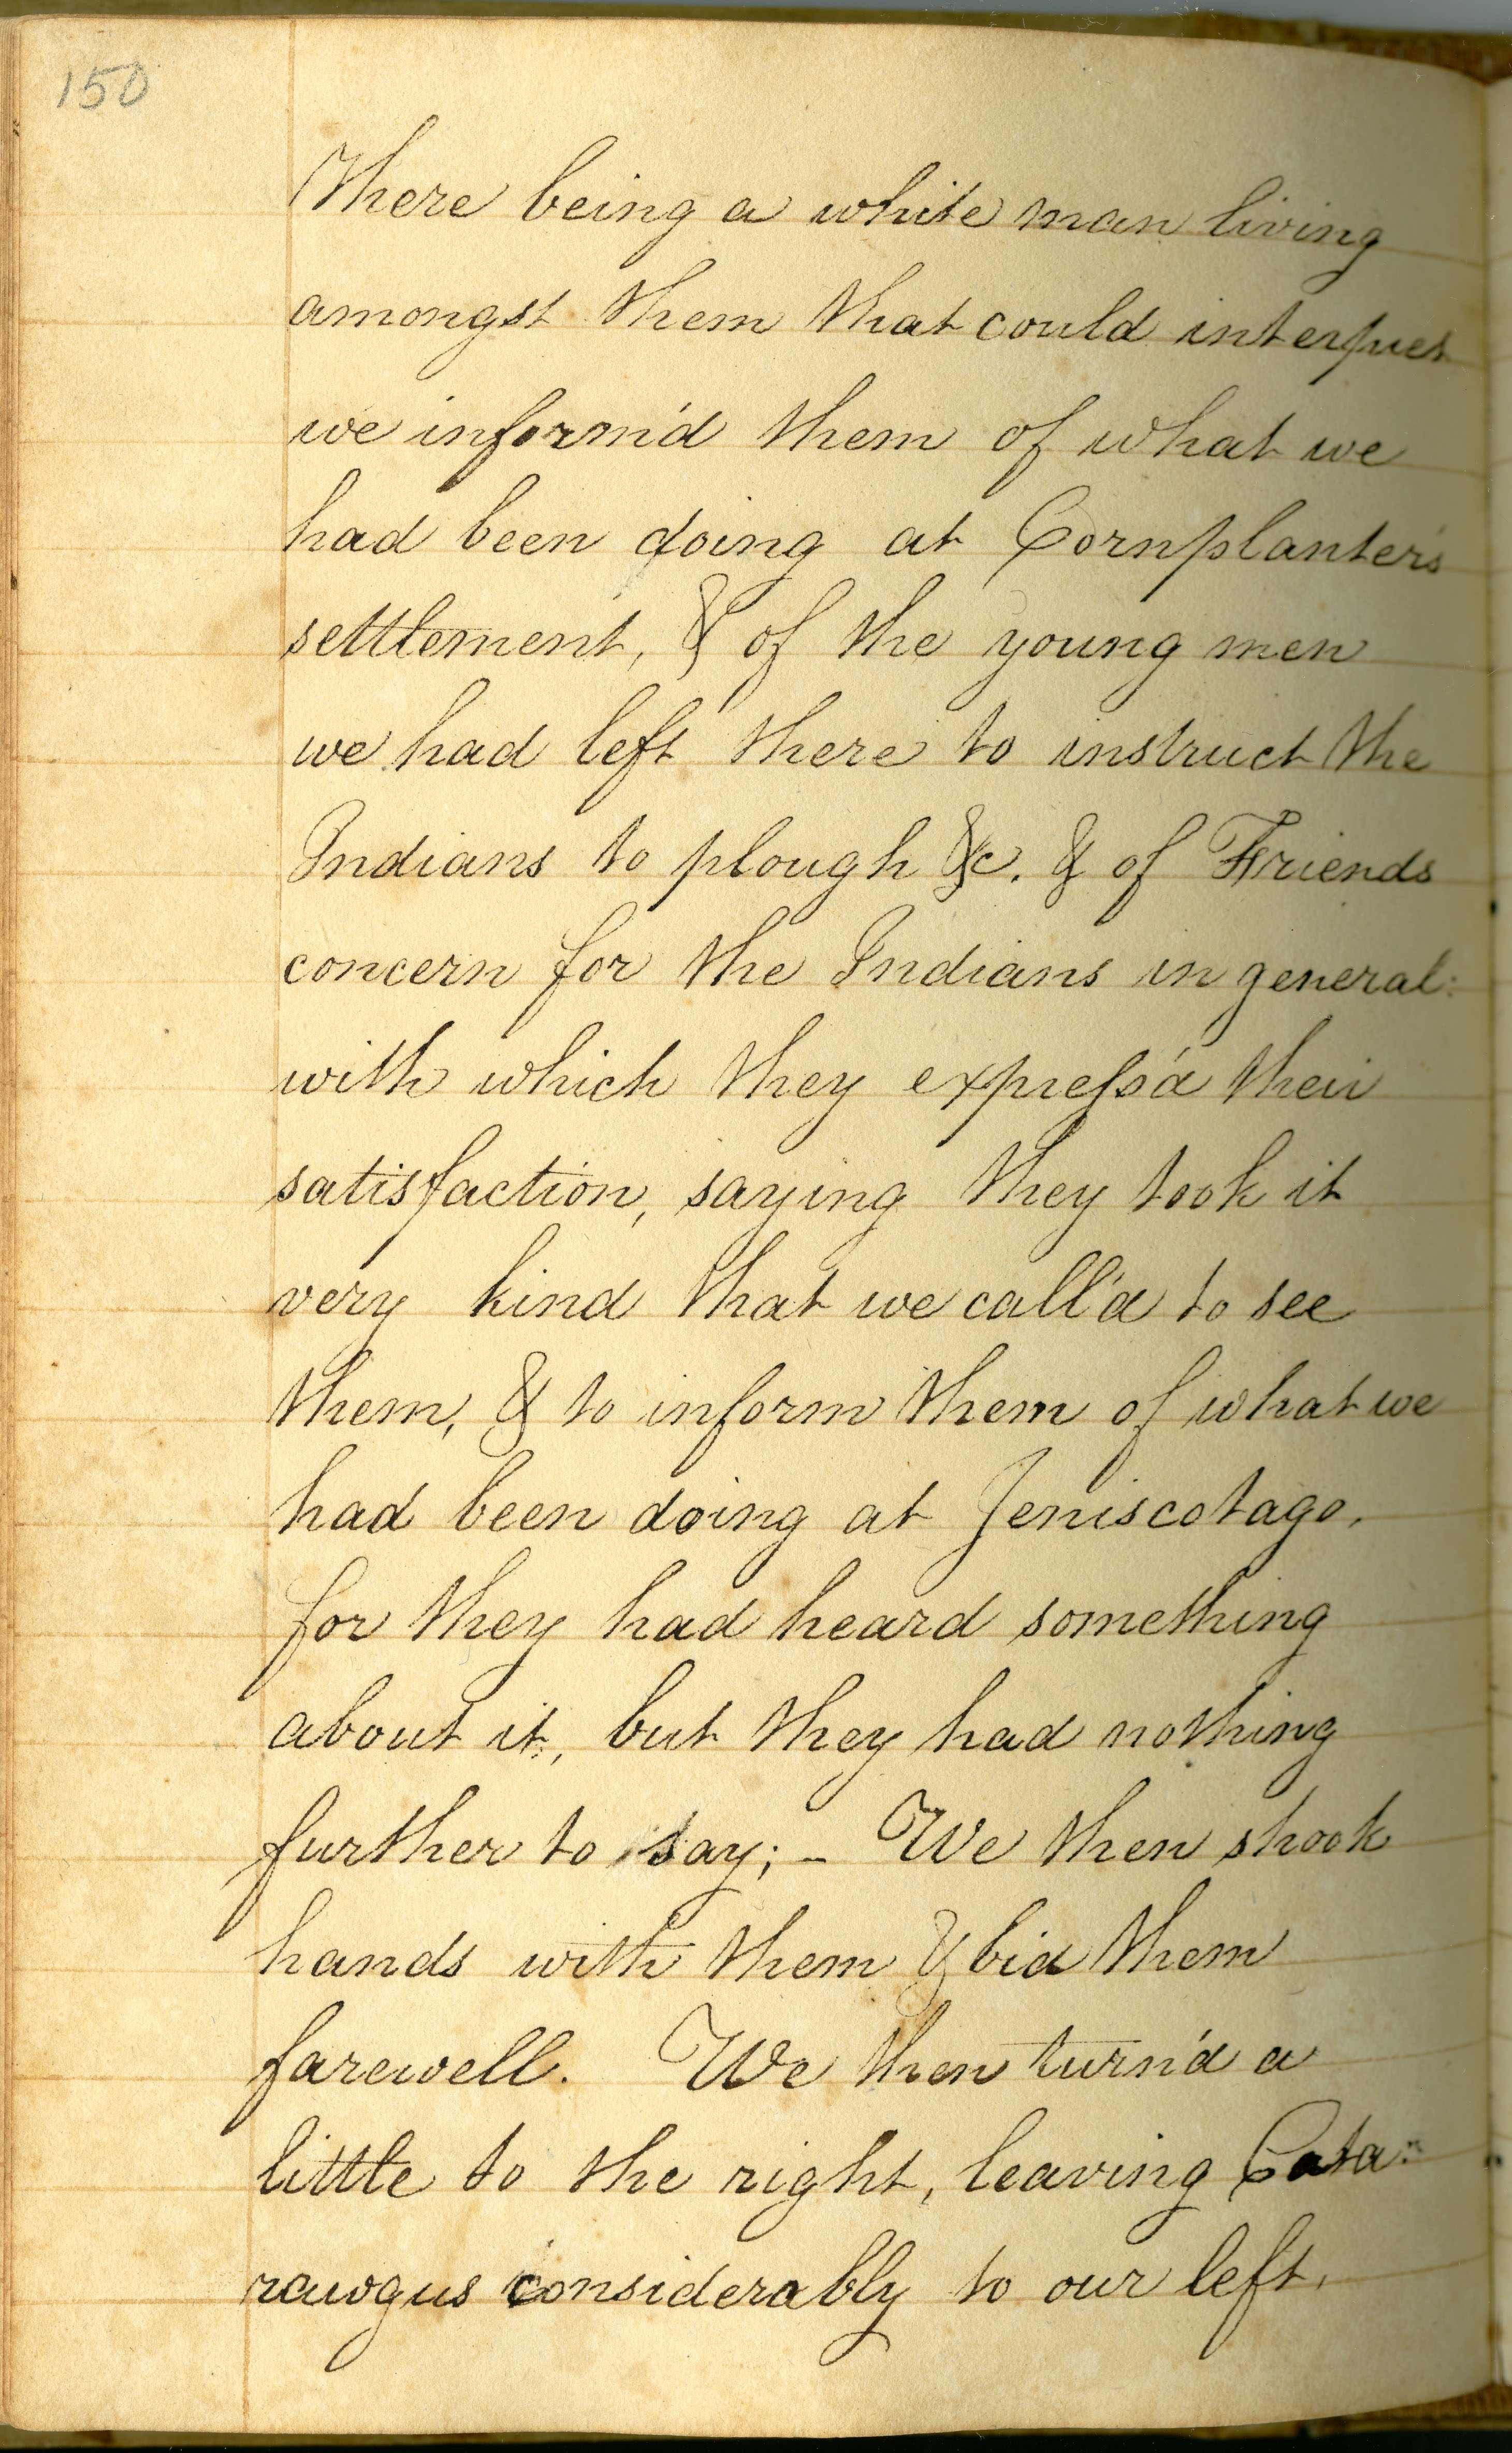 150
There being a white man living
amongst them that could interpret
we inform'd them of what we
had been doing at Cornplanter's
settlement, & of the young men
we had left there to instruct the
Indians to plough &c. & of Friends
concern for the Indians in general:
with which they express'd their
satisfaction, saying they took it
very kind that we call'd to see
them, & to inform them of what we
had been doing at Jeniscotago,
for they had heard something
about it, but they had nothing
further to say; - We then shook
hands with them & bid them
farewell. We then turn'd a
little to the right, leaving Cata=
raugus considerably to our left,